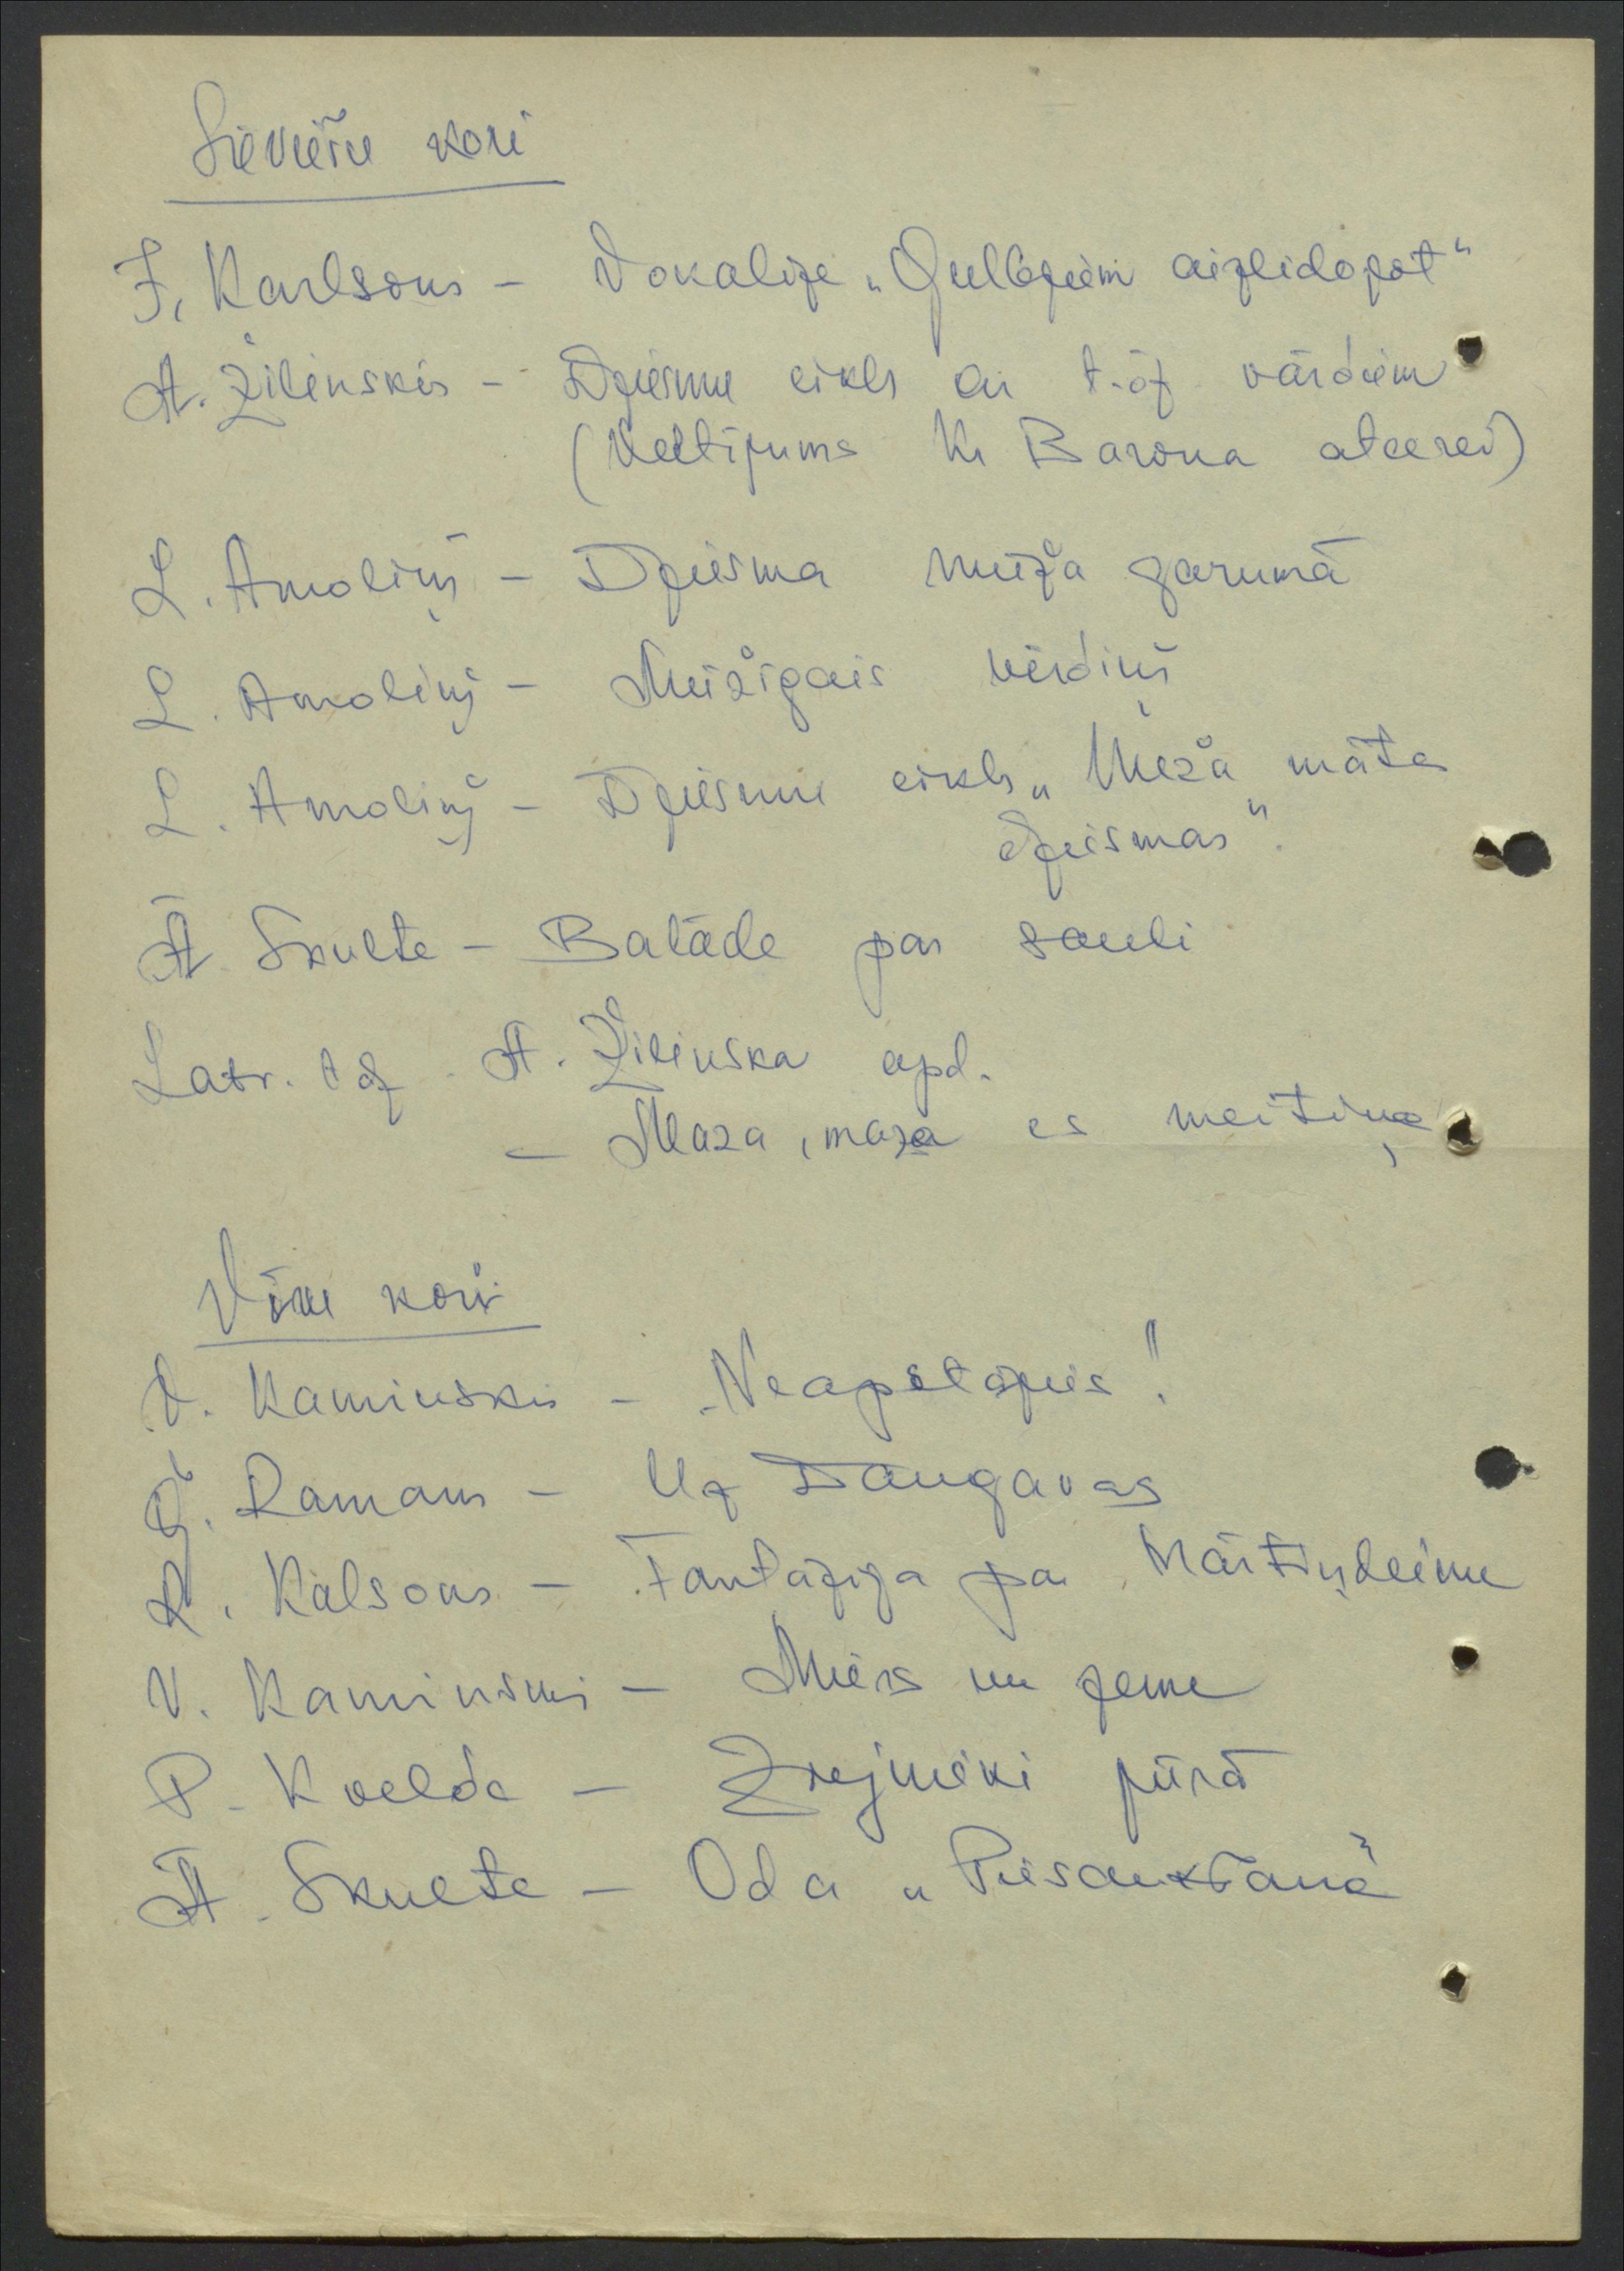 Sieviešu kori
J. Karlsons - Vokalīze „Gulbjiem aizlidojot"
A. Žilinskis - Dziesmu cikls ar t.dz. vārdiem
(Veltījums Kr Barona atcerei)
L. Amoliņš - Dziesma mūža garumā
L. Amoliņš - Mūžīgais vērdiņš
L. Amoliņš - Dziesmu cikls „Meža māte
dziesmas".
Ā Skulte - Balāde par sauli
Latv. t dz. A. Žilinska apd.
- Maza, maza es meitiņa
Vīru kori
V. Kaminskis - „Neapstājies!"
Ģ. Ramans - Uz Daugavas
R. Kalsons - Fantāzija par Mārtiņdienu
V. Kaminskis - Miers un zeme
P. Kvelde - Zvejnieki jūrā
Ā. Skulte - Oda „Piesaukšana"